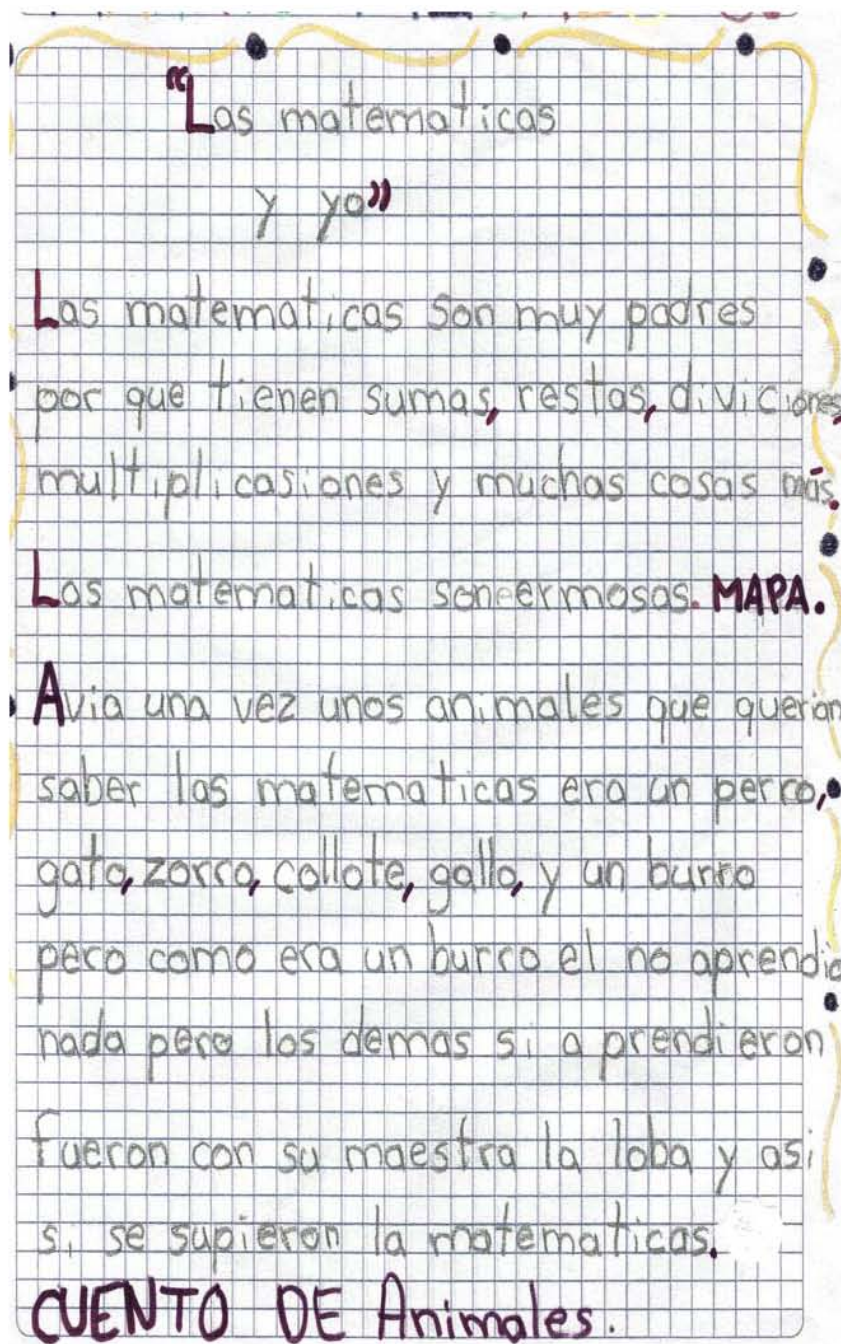 "Las matematicas
y yo"
Las matematicas son muy padres
por que tienen sumas, restas, diviciones,
multiplicasiones y muchas cosas más.
Las matematicas son ermosas. MAPA.
Avia una vez unos animales que querian
saber las matematicas era un perro,
gato, zorro, collote, gallo, y un burro
pero como era un burro el no aprendio
nada pero los demas si a prendieron
fueron con su maestra la loba y asi
si se supieron la matematicas.
CUENTO DE Animales.